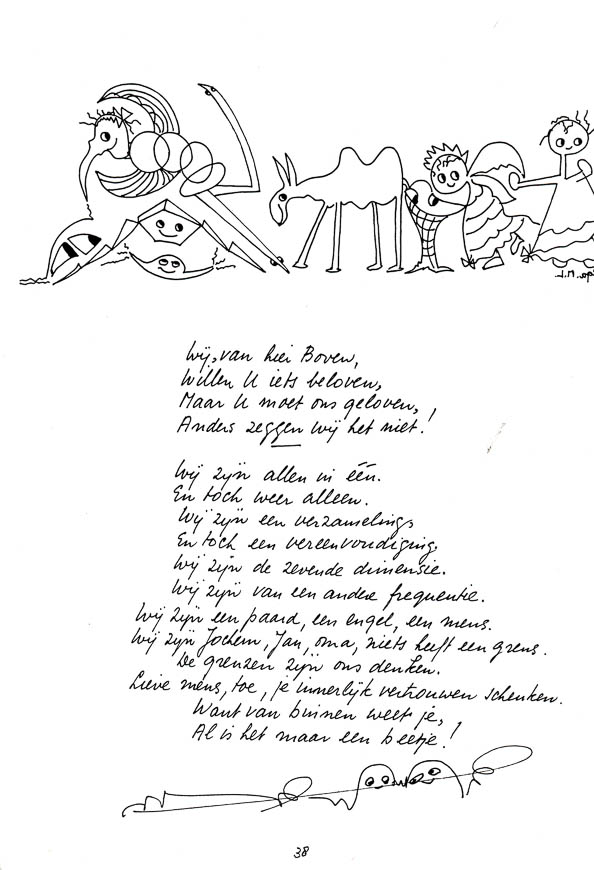 Wij, van hier Boven,
Willen U iets beloven,
Maar U moet ons geloven,
Anders zeggen wij het niet!
Wij zijn allen in één.
En toch weer alleen.
Wij zijn een verzameling,
En toch een vereenvoudiging,
Wij zijn de zevende dimensie.
Wij zijn van een andere frequentie.
Wij zijn een paard, een engel, een mens.
Wij zijn Jochem, Jan, oma, niets heeft een grens.
De grenzen zijn ons denken.
Lieve mens, toe, je innerlijk vertrouwen schenken.
Want van binnen weet je,
Al is het maar een beetje!
38